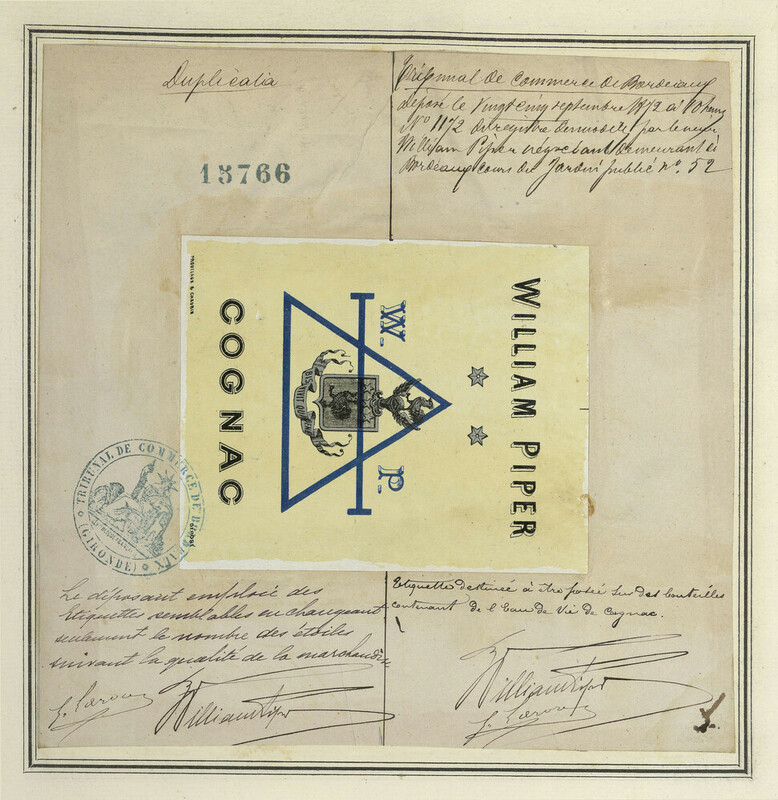 Duplicata
15766
Tribunal de Commerce de Bordeaux
déposé le vingt cinq septembre 1872 à 10 heures
No 1172 du registre des modèles par le sieur
William Piper négociant demeurant à
Bordeaux cours du Jardin public no. 52
WILLIAM PIPER
W. P.
COGNAC
TRIBUNAL DE COMMERCE DE
(GIRONDE)
Le déposant emploie des
Etiquettes semblables en changeant
seulement le nombre des étoiles
suivant la qualité de la marchandise
William Piper
Etiquette destinée à être posée sur des bouteilles
contenant de l'Eau de Vie de Cognac.
William Piper